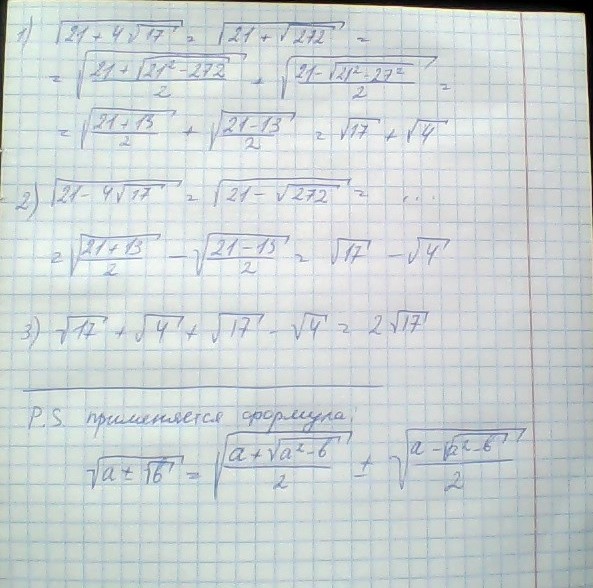 1) √(21 + 4√17) = √(21 + √272) =
= √((21 + √(21² - 272))/2) + √((21 - √(21² - 27²))/2) =
= √((21 + 13)/2) + √((21 - 13)/2) = √17 + √4
2) √(21 - 4√17) = √(21 - √272) = ...
= √((21 + 13)/2) - √((21 - 13)/2) = √17 - √4
3) √17 + √4 + √17 - √4 = 2√17
P.S применяется формула:
√(a ± √b) = √((a + √(a² - b))/2) ± √((a - √(a² - b))/2)